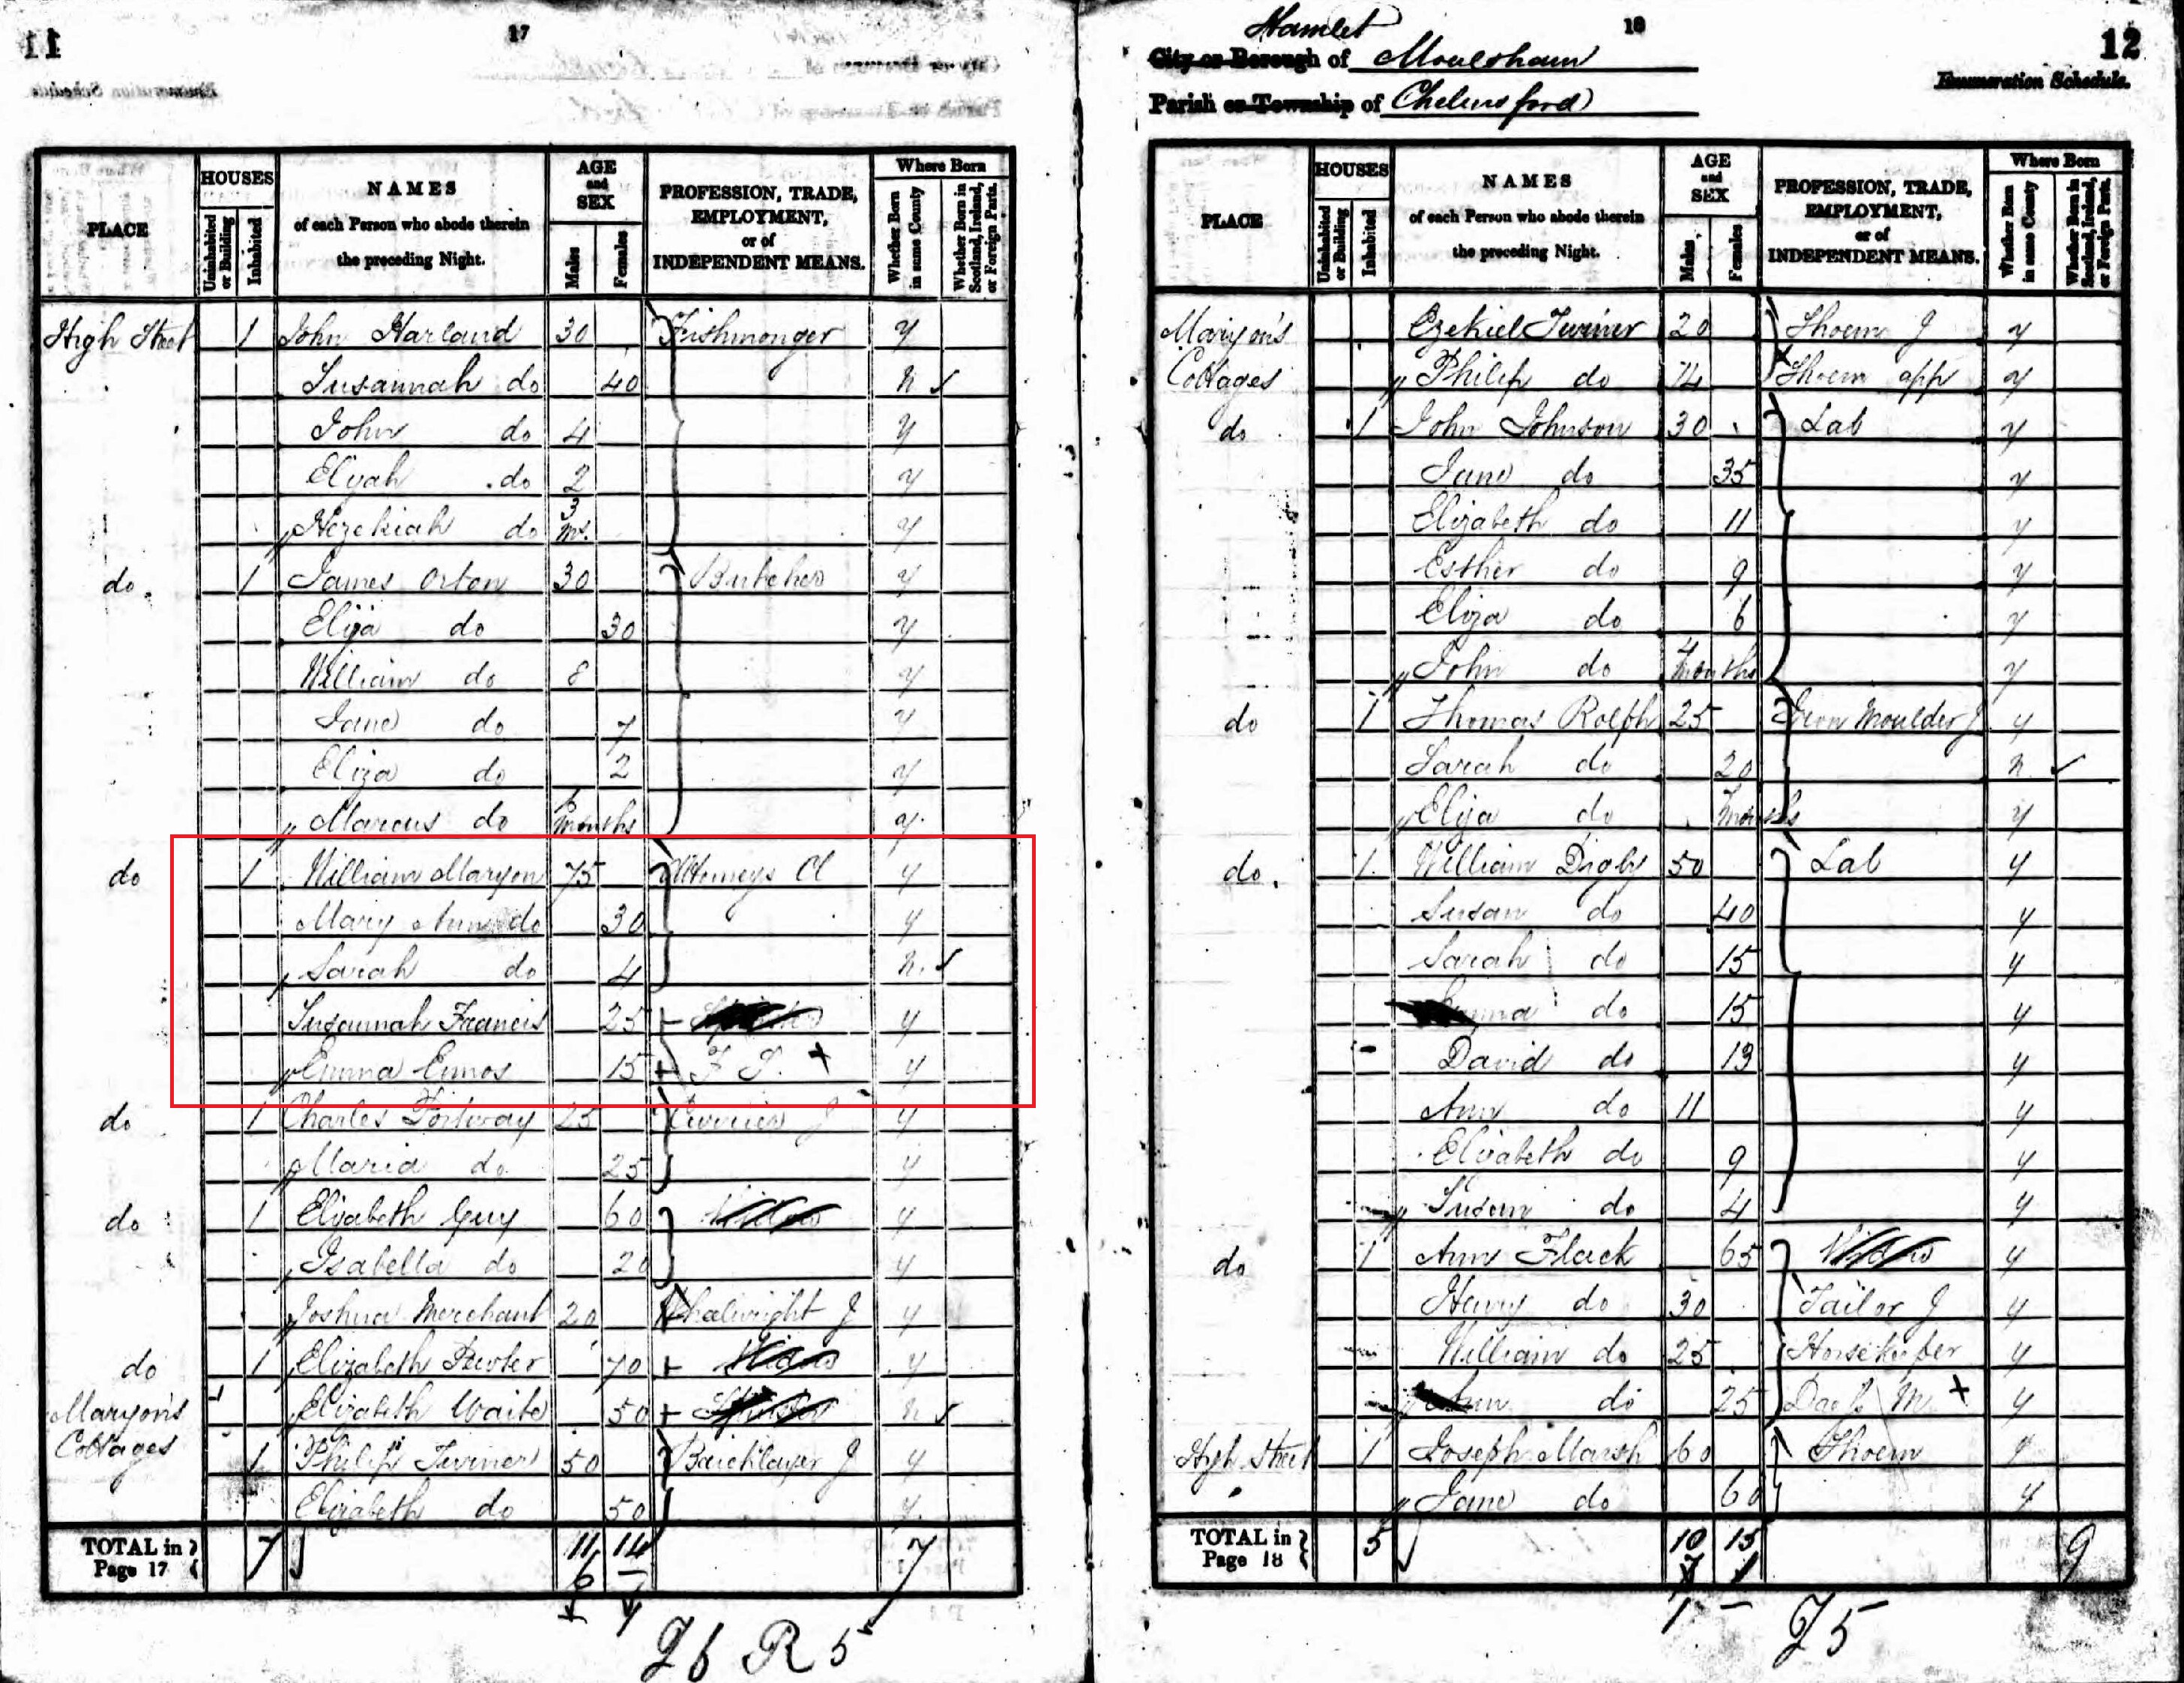 17
11
PLACE
HOUSES
Uninhabited or Building
Inhabited
NAMES
of each Person who abode therein
the preceding Night.
AGE
and
SEX
Males
Females
PROFESSION, TRADE,
EMPLOYMENT,
or of
INDEPENDENT MEANS.
Where Born
Whether Born in same County
Whether Born in Scotland, Ireland, or Foreign Parts.
High Street 1 John Harland 30 Fishmonger y
Susannah do 40 n ✓
John do 4 y
Elijah do 2 y
Hezekiah do 3 ms. y
do 1 James Orton 30 Butcher y
Eliza do 30 y
William do 8 y
Jane do 7 y
Eliza do 2 y
Marcus do months y
do 1 William Maryon 75 Attorneys Cl y
Mary Ann do 30 y
Sarah do 4 n. ✓
Susannah Francis 25 y
Emma Eimos 15 F S. + y
do 1 Charles Portway 25 Currier J y
Maria do 25 y
do 1 Elizabeth Guy 60 y
Isabella do 20 y
Joshua Merchant 20 Whelwright J y
do 1 Elizabeth 70 y
Maryon's 1 Elizabeth Waite 50 n ✓
Cottages 1 Philip Turner 50 Bricklayer J y
Elizabeth do 50 y
TOTAL in Page 17 7 11 14 7
6
J6 R5
18
12
Hamlet
City or Borough of Moulsham
Parish or Township of Chelmsford
Enumeration Schedule.
PLACE
HOUSES
Uninhabited or Building
Inhabited
NAMES
of each Person who abode therein
the preceding Night.
AGE
and
SEX
Males
Females
PROFESSION, TRADE,
EMPLOYMENT,
or of
INDEPENDENT MEANS.
Where Born
Whether Born in same County
Whether Born in Scotland, Ireland, or Foreign Parts.
Maryon's Ezekiel Turner 20 Shoem J y
Cottages Philip do 14 Shoem app y
do 1 John Johnson 30 Lab y
Jane do 35 y
Elizabeth do 11 y
Esther do 9 y
Eliza do 6 y
John do 4 months y
do 1 Thomas Rolph 25 Iron Moulder J y
Sarah do 20 n. ✓
Eliza do months y
do 1 William Digby 50 Lab y
Susan do 40 y
Sarah do 15 y
do 15 y
David do 13 y
Ann do 11 y
Elizabeth do 9 y
Susan do 4 y
do 1 Ann Flack 65 Widow y
Henry do 30 Tailor J y
William do 25 Horsekeeper y
Ann do 25 M + y
High Street 1 Joseph Marsh 60 Shoem y
Jane do 60 y
TOTAL in Page 18 5 10 15 9
J5